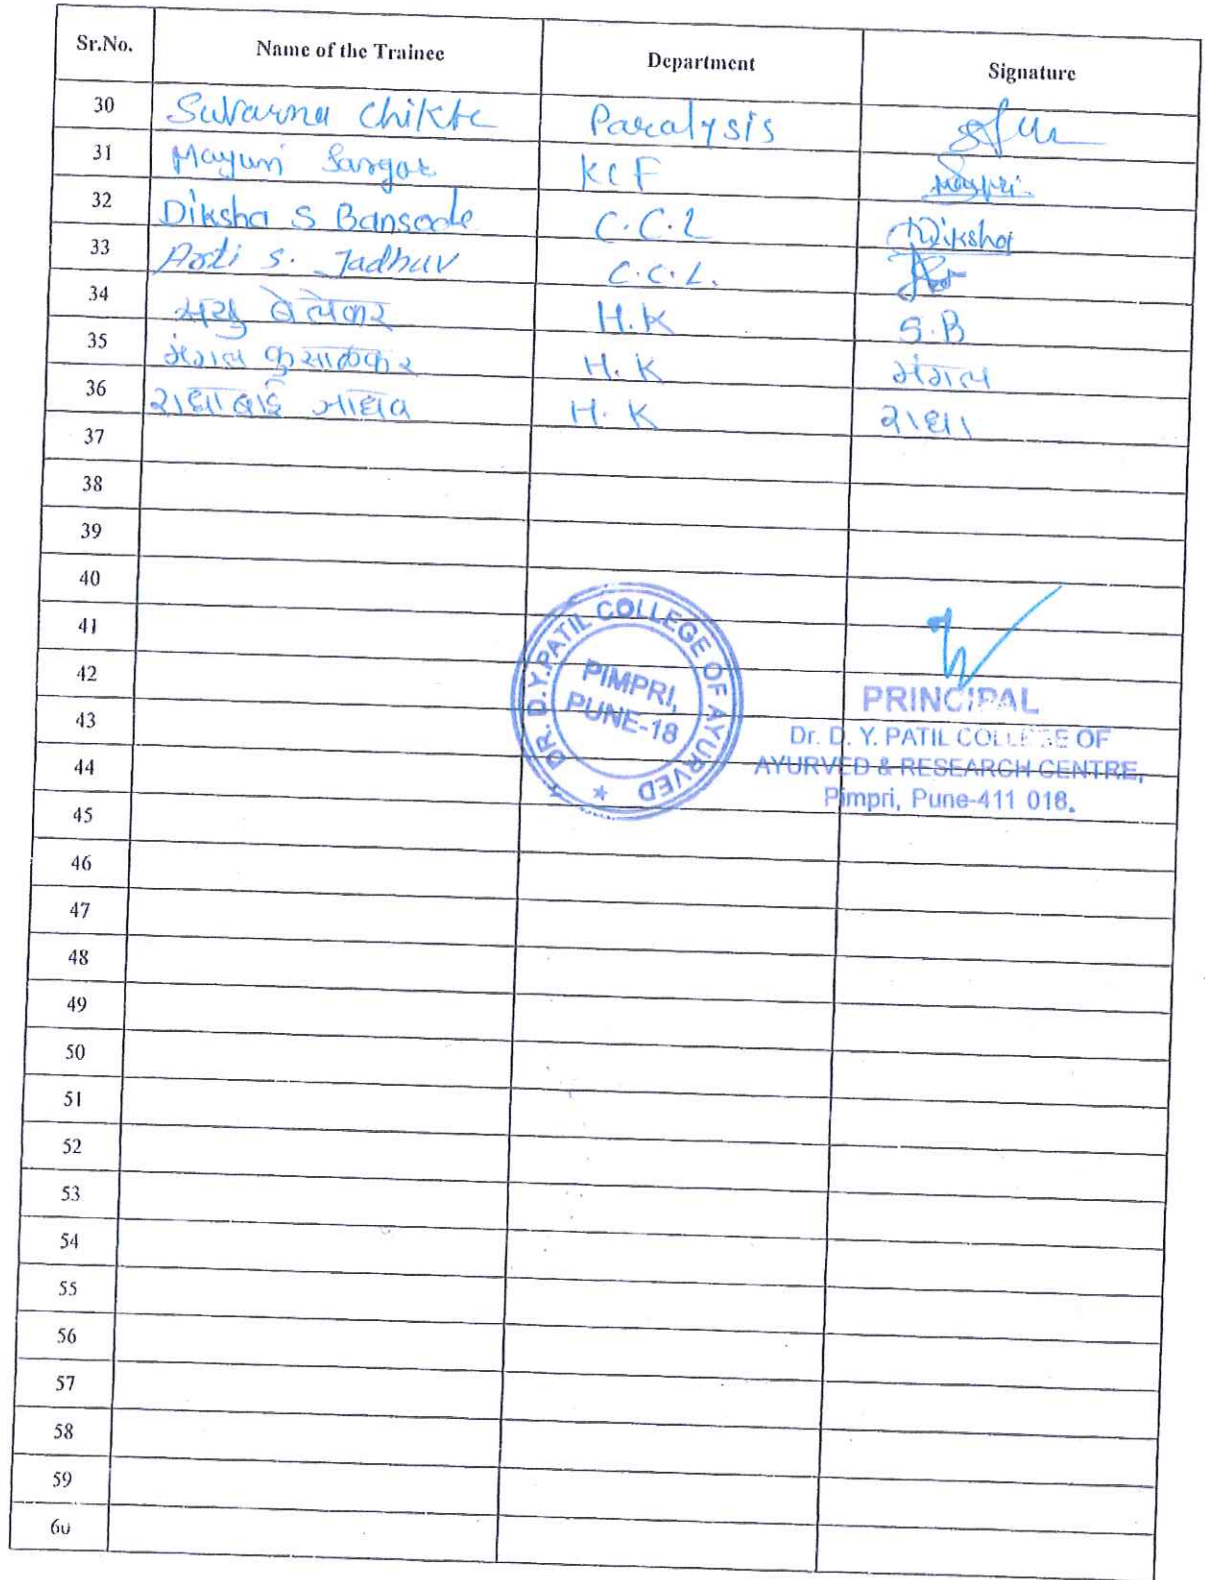 Sr.No. Name of the Trainee Department Signature
30 Suvarna Chikte Paralysis
31 Mayuri Sargar KCF Mayuri
32 Diksha S Bansode C.C.L Diksha
33 Arti S. Jadhav C.C.L.
34 H.K S.B
35 मंगल कुसाळकर H.K मंगल
36 राधाबाई जाधव H.K राधा
37
38
39
40
41
42
43
44
45
46
47
48
49
50
51
52
53
54
55
56
57
58
59
60
DR. D.Y.PATIL COLLEGE OF AYURVED
PIMPRI,
PUNE-18
PRINCIPAL
Dr. D. Y. PATIL COLLEGE OF
AYURVED & RESEARCH CENTRE,
Pimpri, Pune-411 018.